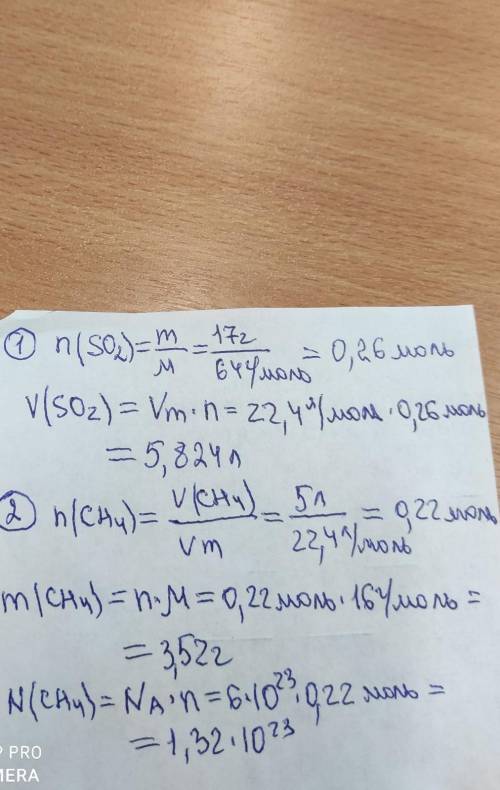 ① n(SO₂) = m/M = 17г/64г/моль = 0,26 моль
V(SO₂) = Vm · n = 22,4л/моль · 0,26 моль
= 5,824 л
② n(CH₄) = V(CH₄)/Vm = 5л/22,4л/моль = 0,22 моль
m(CH₄) = n · M = 0,22 моль · 16г/моль =
= 3,52г
N(CH₄) = NA · n = 6·10²³ · 0,22 моль =
= 1,32·10²³
PRO
MERA